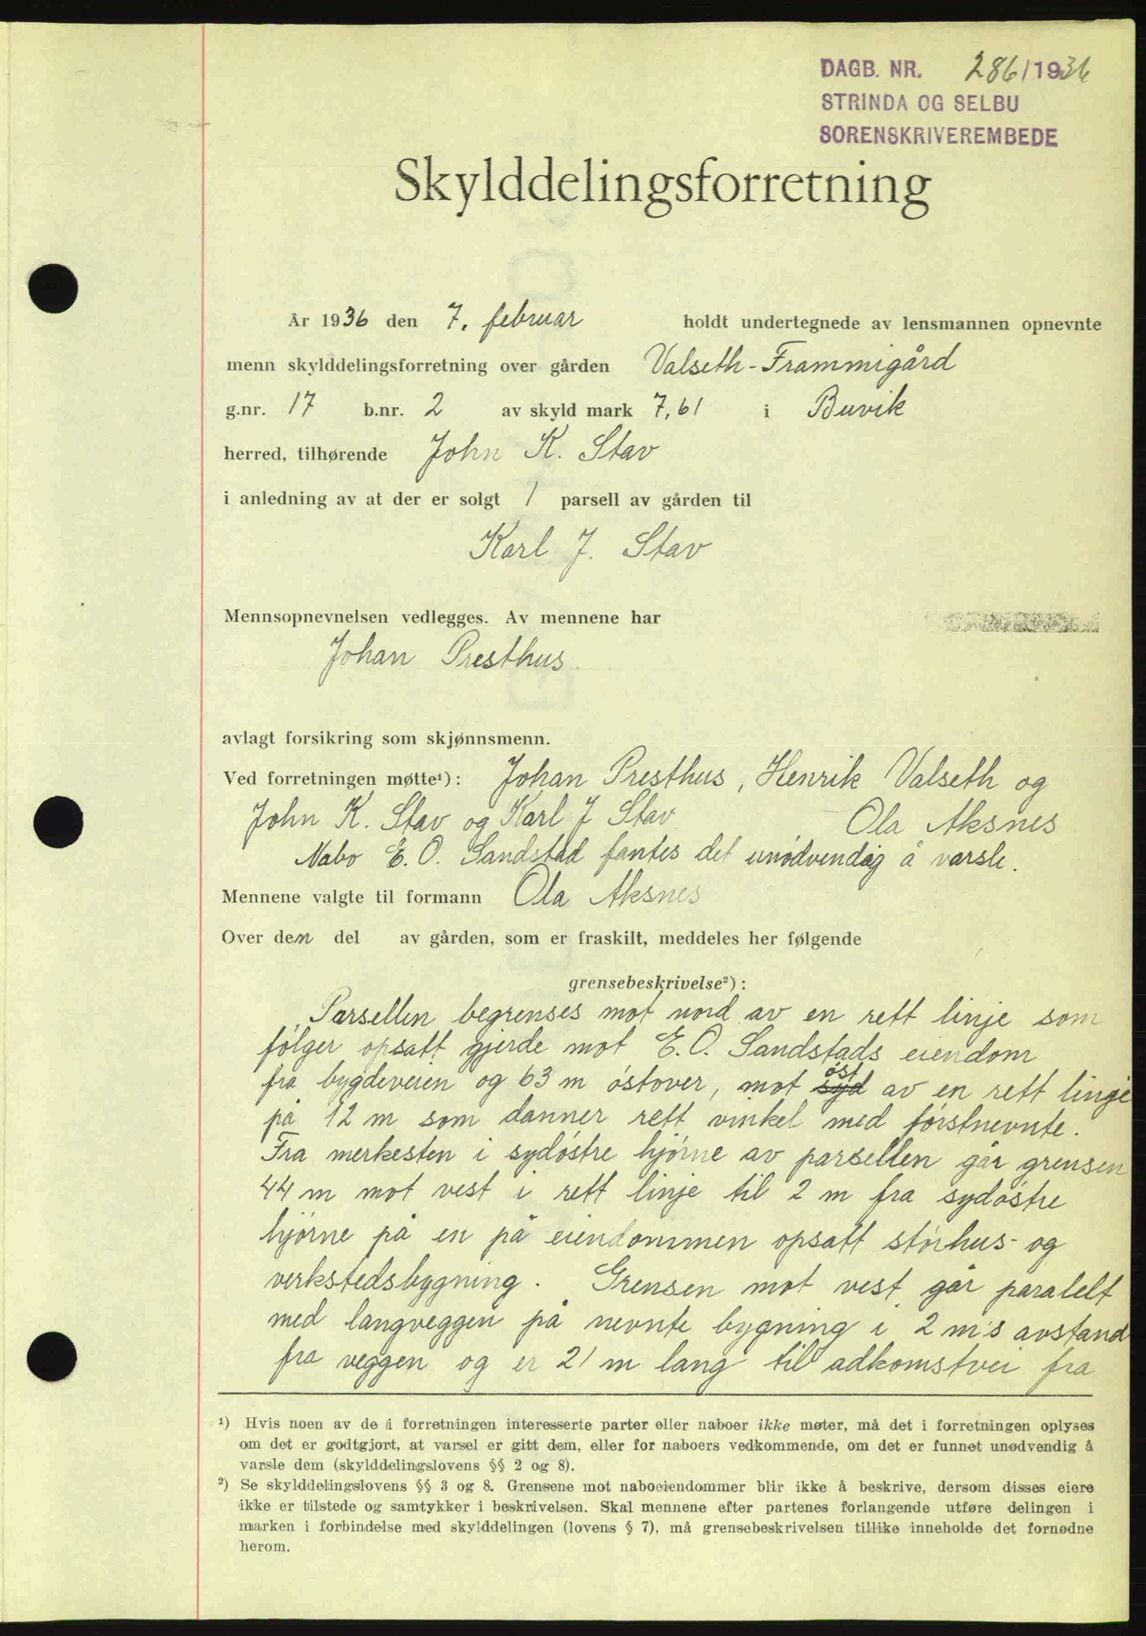 DAGB. NR. 286/1936
STRINDA OG SELBU
SORENSKRIVEREMBEDE
Skylddelingsforretning
År 1936 den 7. februar holdt undertegnede av lensmannen opnevnte
menn skylddelingsforretning over gården Valseth-Frammigård
g.nr. 17 b.nr. 2 av skyld mark 7,61 i Buvik
herred, tilhørende John K. Stav
i anledning av at der er solgt 1 parsell av gården til
Karl J. Stav
Mennsopnevnelsen vedlegges. Av mennene har
Johan Presthus
avlagt forsikring som skjønnsmenn.
Ved forretningen møtte¹): Johan Presthus, Henrik Valseth og
John K. Stav og Karl J Stav Ola Aksnes
Nabo E. O. Sandstad fantes det unödvendig å varsle.
Mennene valgte til formann Ola Aksnes
Over den del av gården, som er fraskilt, meddeles her følgende
grensebeskrivelse²):
Parsellen begrenses mot nord av en rett linje som
følger opsatt gjerde mot E. O. Sandstads eiendom
fra bygdeveien og 63 m östover, mot syd öst av en rett linje
på 12 m som danner rett vinkel med förstnevnte.
Fra merkesten i sydöstre hjörne av parsellen går grensen
44 m mot vest i rett linje til 2 m fra sydöstre
hjörne på en på eiendommen opsatt störhus- og
verkstedsbygning. Grensen mot vest går paralelt
med langveggen på nevnte bygning i 2 m's avstand
fra veggen og er 21 m lang til adkomstvei fra
¹) Hvis noen av de i forretningen interesserte parter eller naboer ikke møter, må det i forretningen oplyses
om det er godtgjort, at varsel er gitt dem, eller for naboers vedkommende, om det er funnet unødvendig å
varsle dem (skylddelingslovens §§ 2 og 8).
²) Se skylddelingslovens §§ 3 og 8. Grensene mot naboeiendommer blir ikke å beskrive, dersom disses eiere
ikke er tilstede og samtykker i beskrivelsen. Skal mennene efter partenes forlangende utføre delingen i
marken i forbindelse med skylddelingen (lovens § 7), må grensebeskrivelsen tillike inneholde det fornødne
herom.